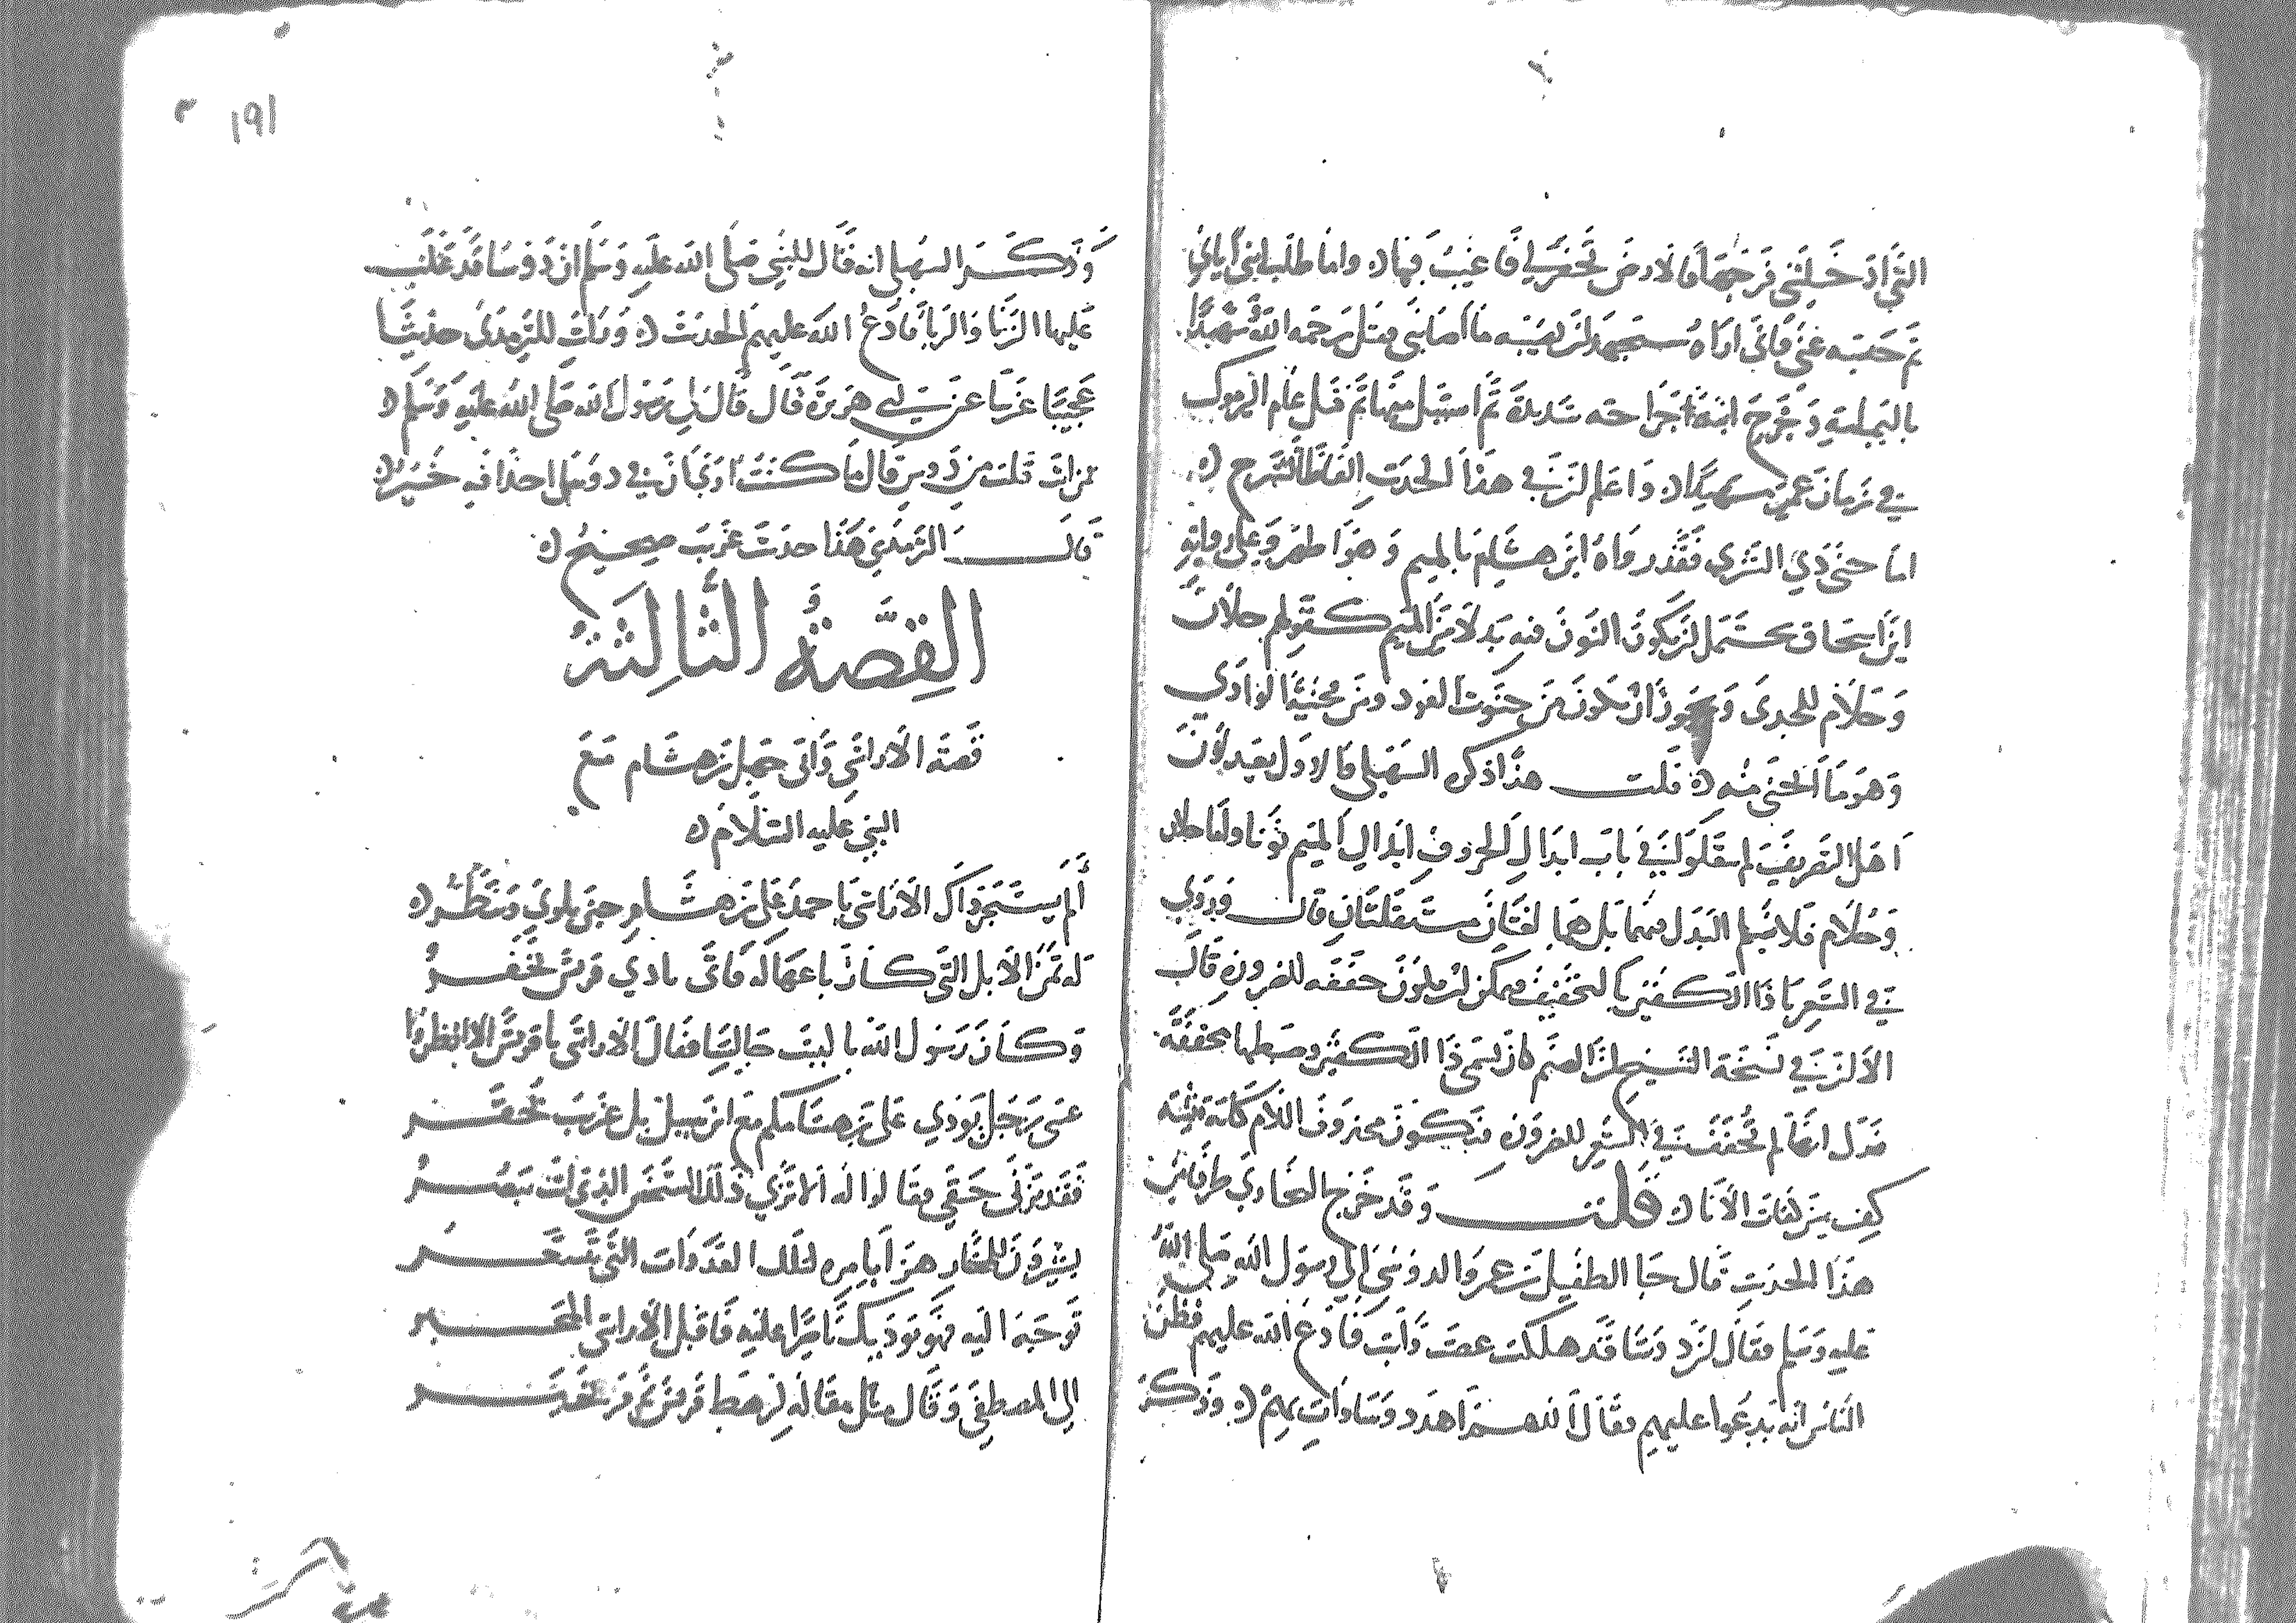 التي ادخلتني فرجها فالارض تحفر لي فاغيب فيها واما طلب ابني اياي
ثم حبسه عني فاني اراه سيجهد لن يصيبه ما اصابني فقتل رحمه الله شهيدا
باليمامة وجرح ابنه جراحه شديدة ثم استبل منها ثم قتل عام اليرموك
في زمان عمر شهيدا واعلم ان في هذا الحديث الفاظا تشرح
اما حنى ذي الشرى فقد رواه ابن هشام بالميم وهو اظهر وعلى رواية
ابن اسحاق يحتمل ان يكون النون فيه بدلا من الميم كقولهم حلان
وحلام للجدي ويجوز ان يكون من حنوت العود ومن محنية الوادي
وهو ما انحنى منه قلت هذا ذكره السهيلي فالاول بعيد لان
اهل التصريف لم ينقلوا في باب ابدال الحروف ابدال الميم نونا واما حلان
وحلام فلا نسلم البدل فيهما بل هما لغتان مستقلتان قال وروي
في الشعر يا ذا الكفين بالتخفيف فيمكن ان يكون خففه للضرورة قال
الا ان في نسخة الشيخ ان الصنم كان يسمى ذا الكفين وضبطها مخففة
فدل انها لم تخفف في الشعر للضرورة فيكون محذوف اللام كانه تثنية
كف من كفات الانا قلت وقد خرج البخاري طرفا من
هذا الحديث قال جا الطفيل بن عمرو الدوسي الى رسول الله صلى الله
عليه وسلم فقال ان دوسا قد هلكت عصت وابت فادع الله عليهم فظن
الناس انه يدعوا عليهم فقال اللهم اهد دوسا وات بهم وذكر
١٩١
وذكر السهيلي انه قال للنبي صلى الله عليه وسلم ان دوسا قد غلب
عليها الزنا والربا فادع الله عليهم الحديث ورايت للترمذي حديثا
عجيبا غريبا عن ابي هريرة قال قال لي رسول الله صلى الله عليه وسلم
ممن انت قلت من دوس قال ما كنت ارى ان في دوس احدا فيه خير
قال الترمذي هذا حديث غريب صحيح
القصة الثالثة
قصة الاراشي وابي جهل بن هشام مع
النبي عليه السلام
ألم يستجر ذاك الاراشي باحمد على بن هشام حين يلوي وينظر
له ثمن الابل التي كان باعها له فاتى نادي قريش لخفر
وكان رسول الله بالبيت جالسا فقال الاراشي يا قريش الا انظروا
عنى رجل يودي على بن هشامكم مع ابن سبيل بل غريب تحقر
فقد بزني حقي فقالوا له الا ترى ذلك الشخص الذي انت تبصر
يشيرون للمختار هزأ بامره لتلك العداوات التي تتسعر
توجه اليه فهو يوديك ناصرا عليه فاقبل الاراشي المخبر
الى المصطفى وقال مثل مقاله لرهط قريش ثم